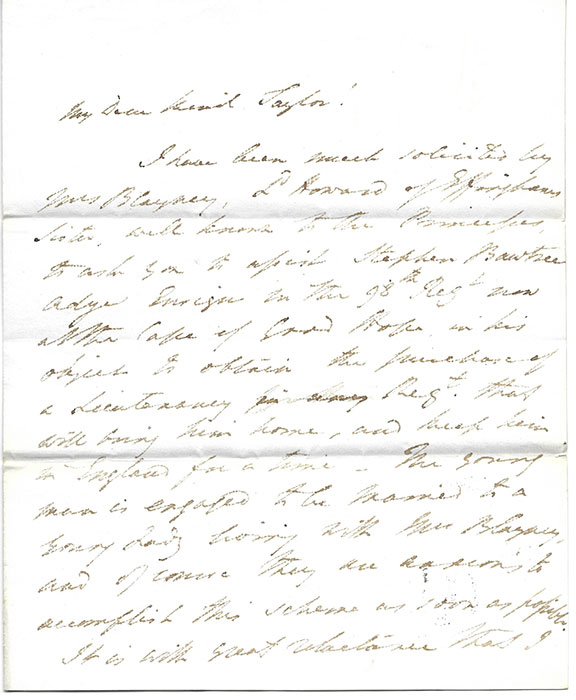 My Dear kind Taylor!
I have been much solicited by
Mrs Blayney, Ld Howard of Effingham's
Sister, well known to the Princesses,
to ask you to assist Stephen Bawtree
Adye Ensign in the 98th Regt now
at the Cape of Good Hope in his
object to obtain the purchase of
a Lieutenancy in any Regt. that
will bring him home, and keep him
in England for a time – The young
man is engaged to be married to a
young Lady living with Mrs Blayney,
and of course they are anxious to
accomplish this scheme as soon as possible.
It is with great reluctance that I